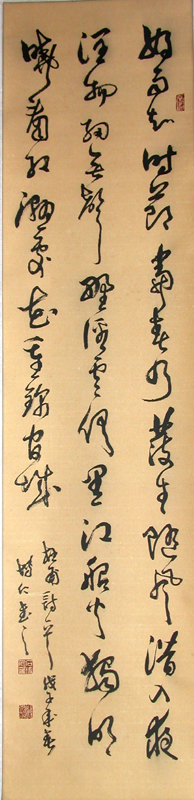 好雨知時節當春乃發生隨風潛入夜
潤物細無聲野徑雲俱黑江船火獨明
曉看紅濕處花重錦官城
杜甫詩一首戊子
仁書